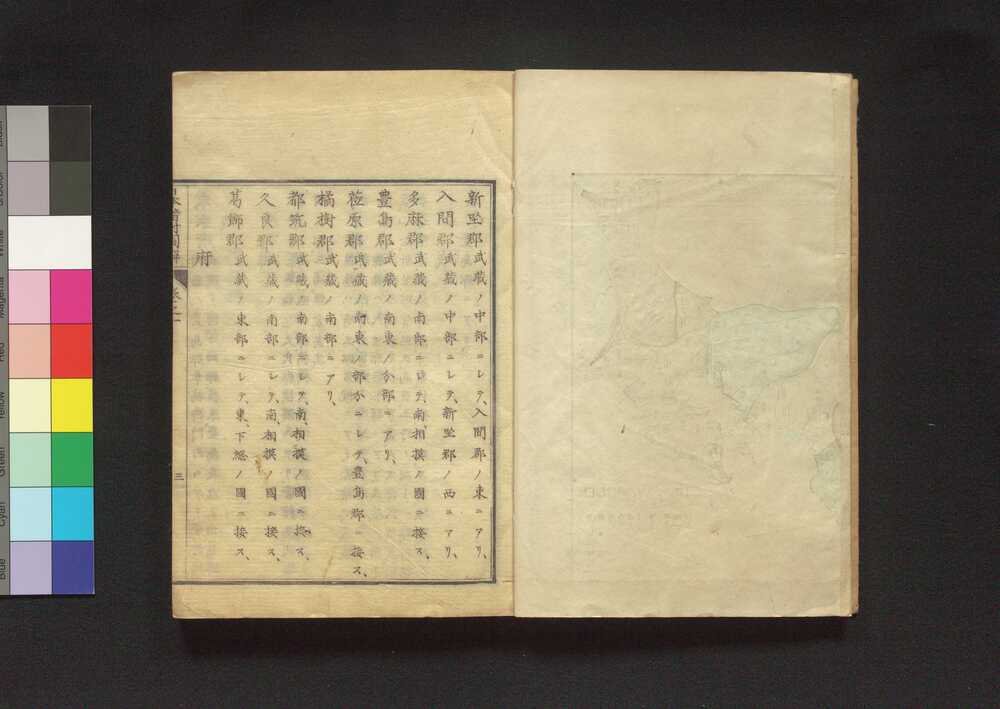 新坐郡武蔵ノ中部ニシテ、入間郡ノ東ニアリ、
入間郡武蔵ノ中部ニシテ、新坐郡ノ西ニアリ、
多麻郡武蔵ノ南部ニシテ、南、相摸ノ國ニ接ス、
豊島郡武蔵ノ南東ノ分部ニアリ、
荏原郡武蔵ノ南東ノ部分ニシテ、豊島郡ニ接ス、
橘樹郡武蔵ノ南部ニアリ、
都筑郡武蔵ノ南部ニシテ、南、相摸ノ國ニ接ス、
久良郡武蔵ノ南部ニシテ、南、相摸ノ國ニ接ス、
葛飾郡武蔵ノ東部ニシテ、東、下総ノ國ニ接ス、
府
卷之一
三
White
Magenta
Red
Yellow
Green
Cyan
Blue